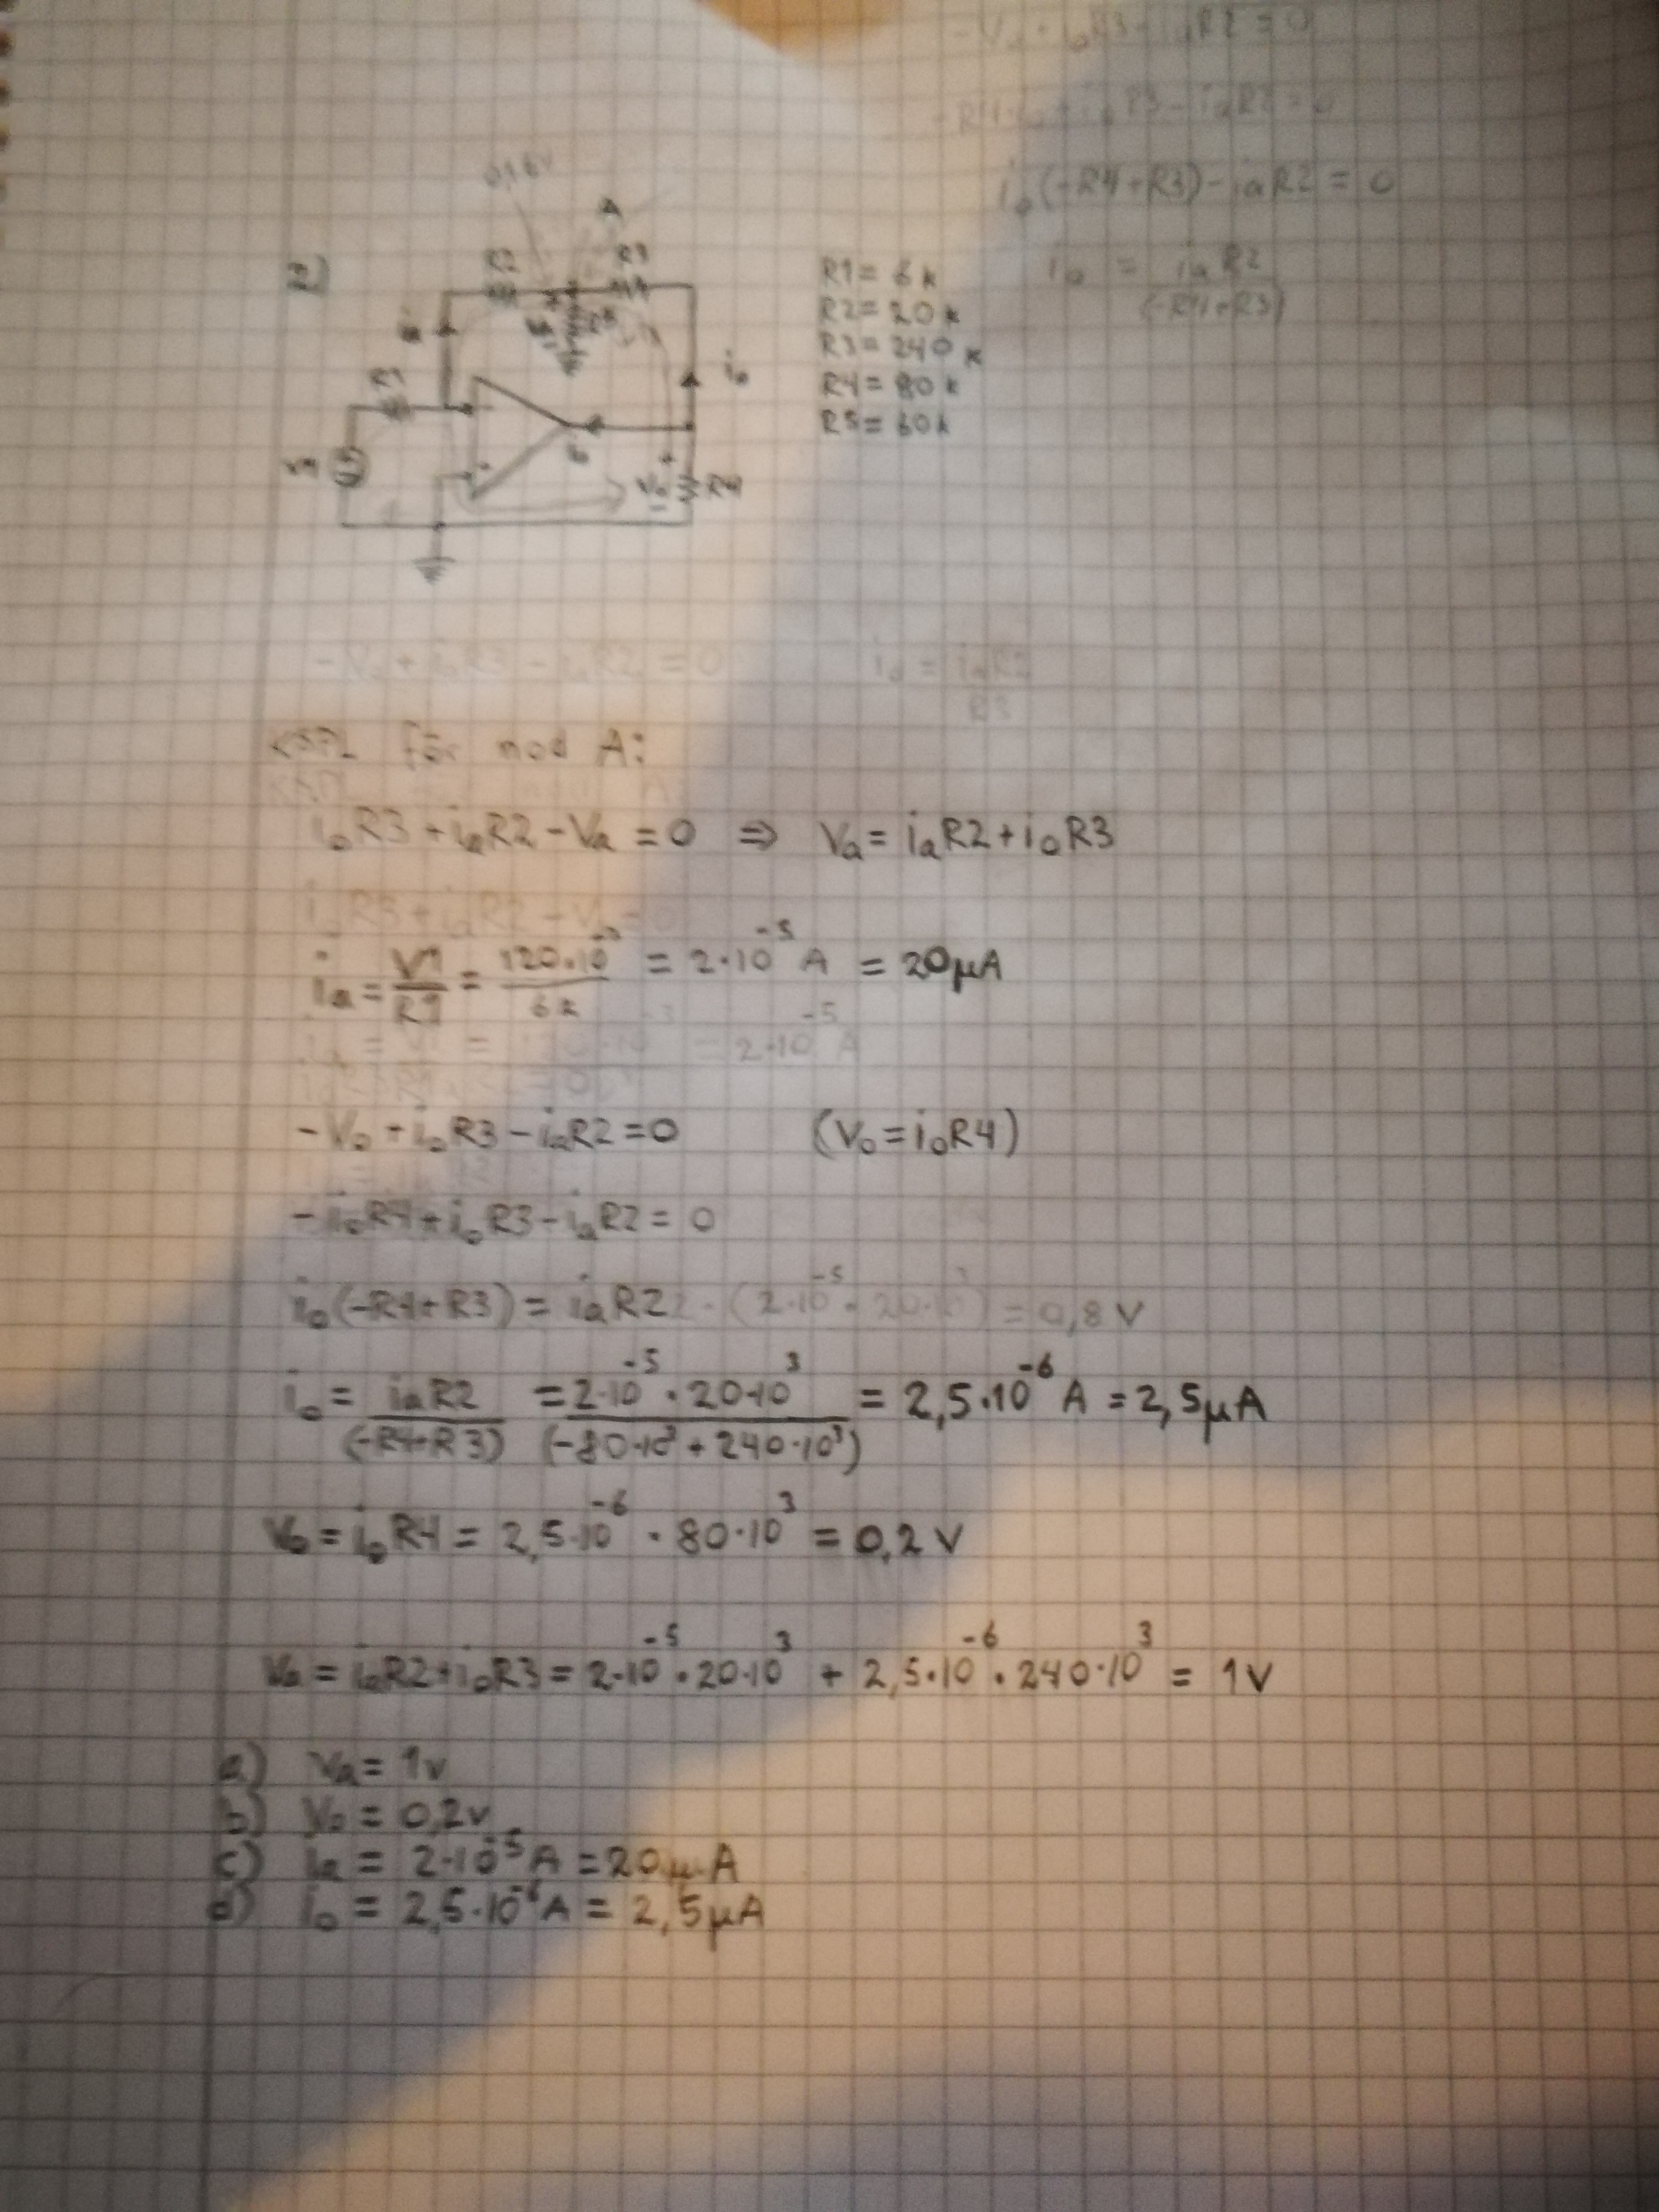 -V₀ + i₀R3 - iₐR2 = 0
-R4·i₀ + i₀R3 - iₐR2 = 0
i₀(-R4+R3) - iₐR2 = 0
i₀ = iₐR2 / (-R4+R3)
A
R2 R3
R1 = 6k
R2 = 20k
R3 = 240k
R4 = 80k
R5 = 60k
R1
i₀
V₀ R4
-V₀ + i₀R3 - iₐR2 = 0
i₀ = iₐR2 / R3
för nod A:
i₀R3 + iₐR2 - Vₐ = 0 ⇒ Vₐ = iₐR2 + i₀R3
i₀R3 + iₐR2 - V
iₐ = V1 / R1 = 120·10⁻³ / 6k = 2·10⁻⁵ A = 20μA
= 2·10⁻⁵ A
-V₀ + i₀R3 - iₐR2 = 0 (V₀ = i₀R4)
-i₀R4 + i₀R3 - iₐR2 = 0
i₀(-R4+R3) = iₐR2 2·(2·10⁻⁵·20·10³) = 0,8 V
i₀ = iₐR2 / (-R4+R3) = 2·10⁻⁵·20·10³ / (-80·10³ + 240·10³) = 2,5·10⁻⁶ A = 2,5μA
V₀ = i₀R4 = 2,5·10⁻⁶ · 80·10³ = 0,2 V
Vₐ = iₐR2 + i₀R3 = 2·10⁻⁵·20·10³ + 2,5·10⁻⁶·240·10³ = 1V
a) Vₐ = 1v
b) V₀ = 0,2v
c) iₐ = 2·10⁻⁵A = 20μA
d) i₀ = 2,5·10⁻⁶A = 2,5μA